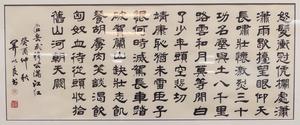 怒髮衝冠凭欄處瀟
瀟雨歇抬望眼仰天
長嘯壯懷激烈三十
功名塵與土八千里
路雲和月莫等閒白
了少年頭空悲切
靖康恥猶未雪臣子
恨何時滅駕長車踏
破賀蘭山缺壯志飢
餐胡虜肉笑談渴飲
匈奴血待從頭收拾
舊山河朝天闕
岳武穆滿江紅
癸酉仲